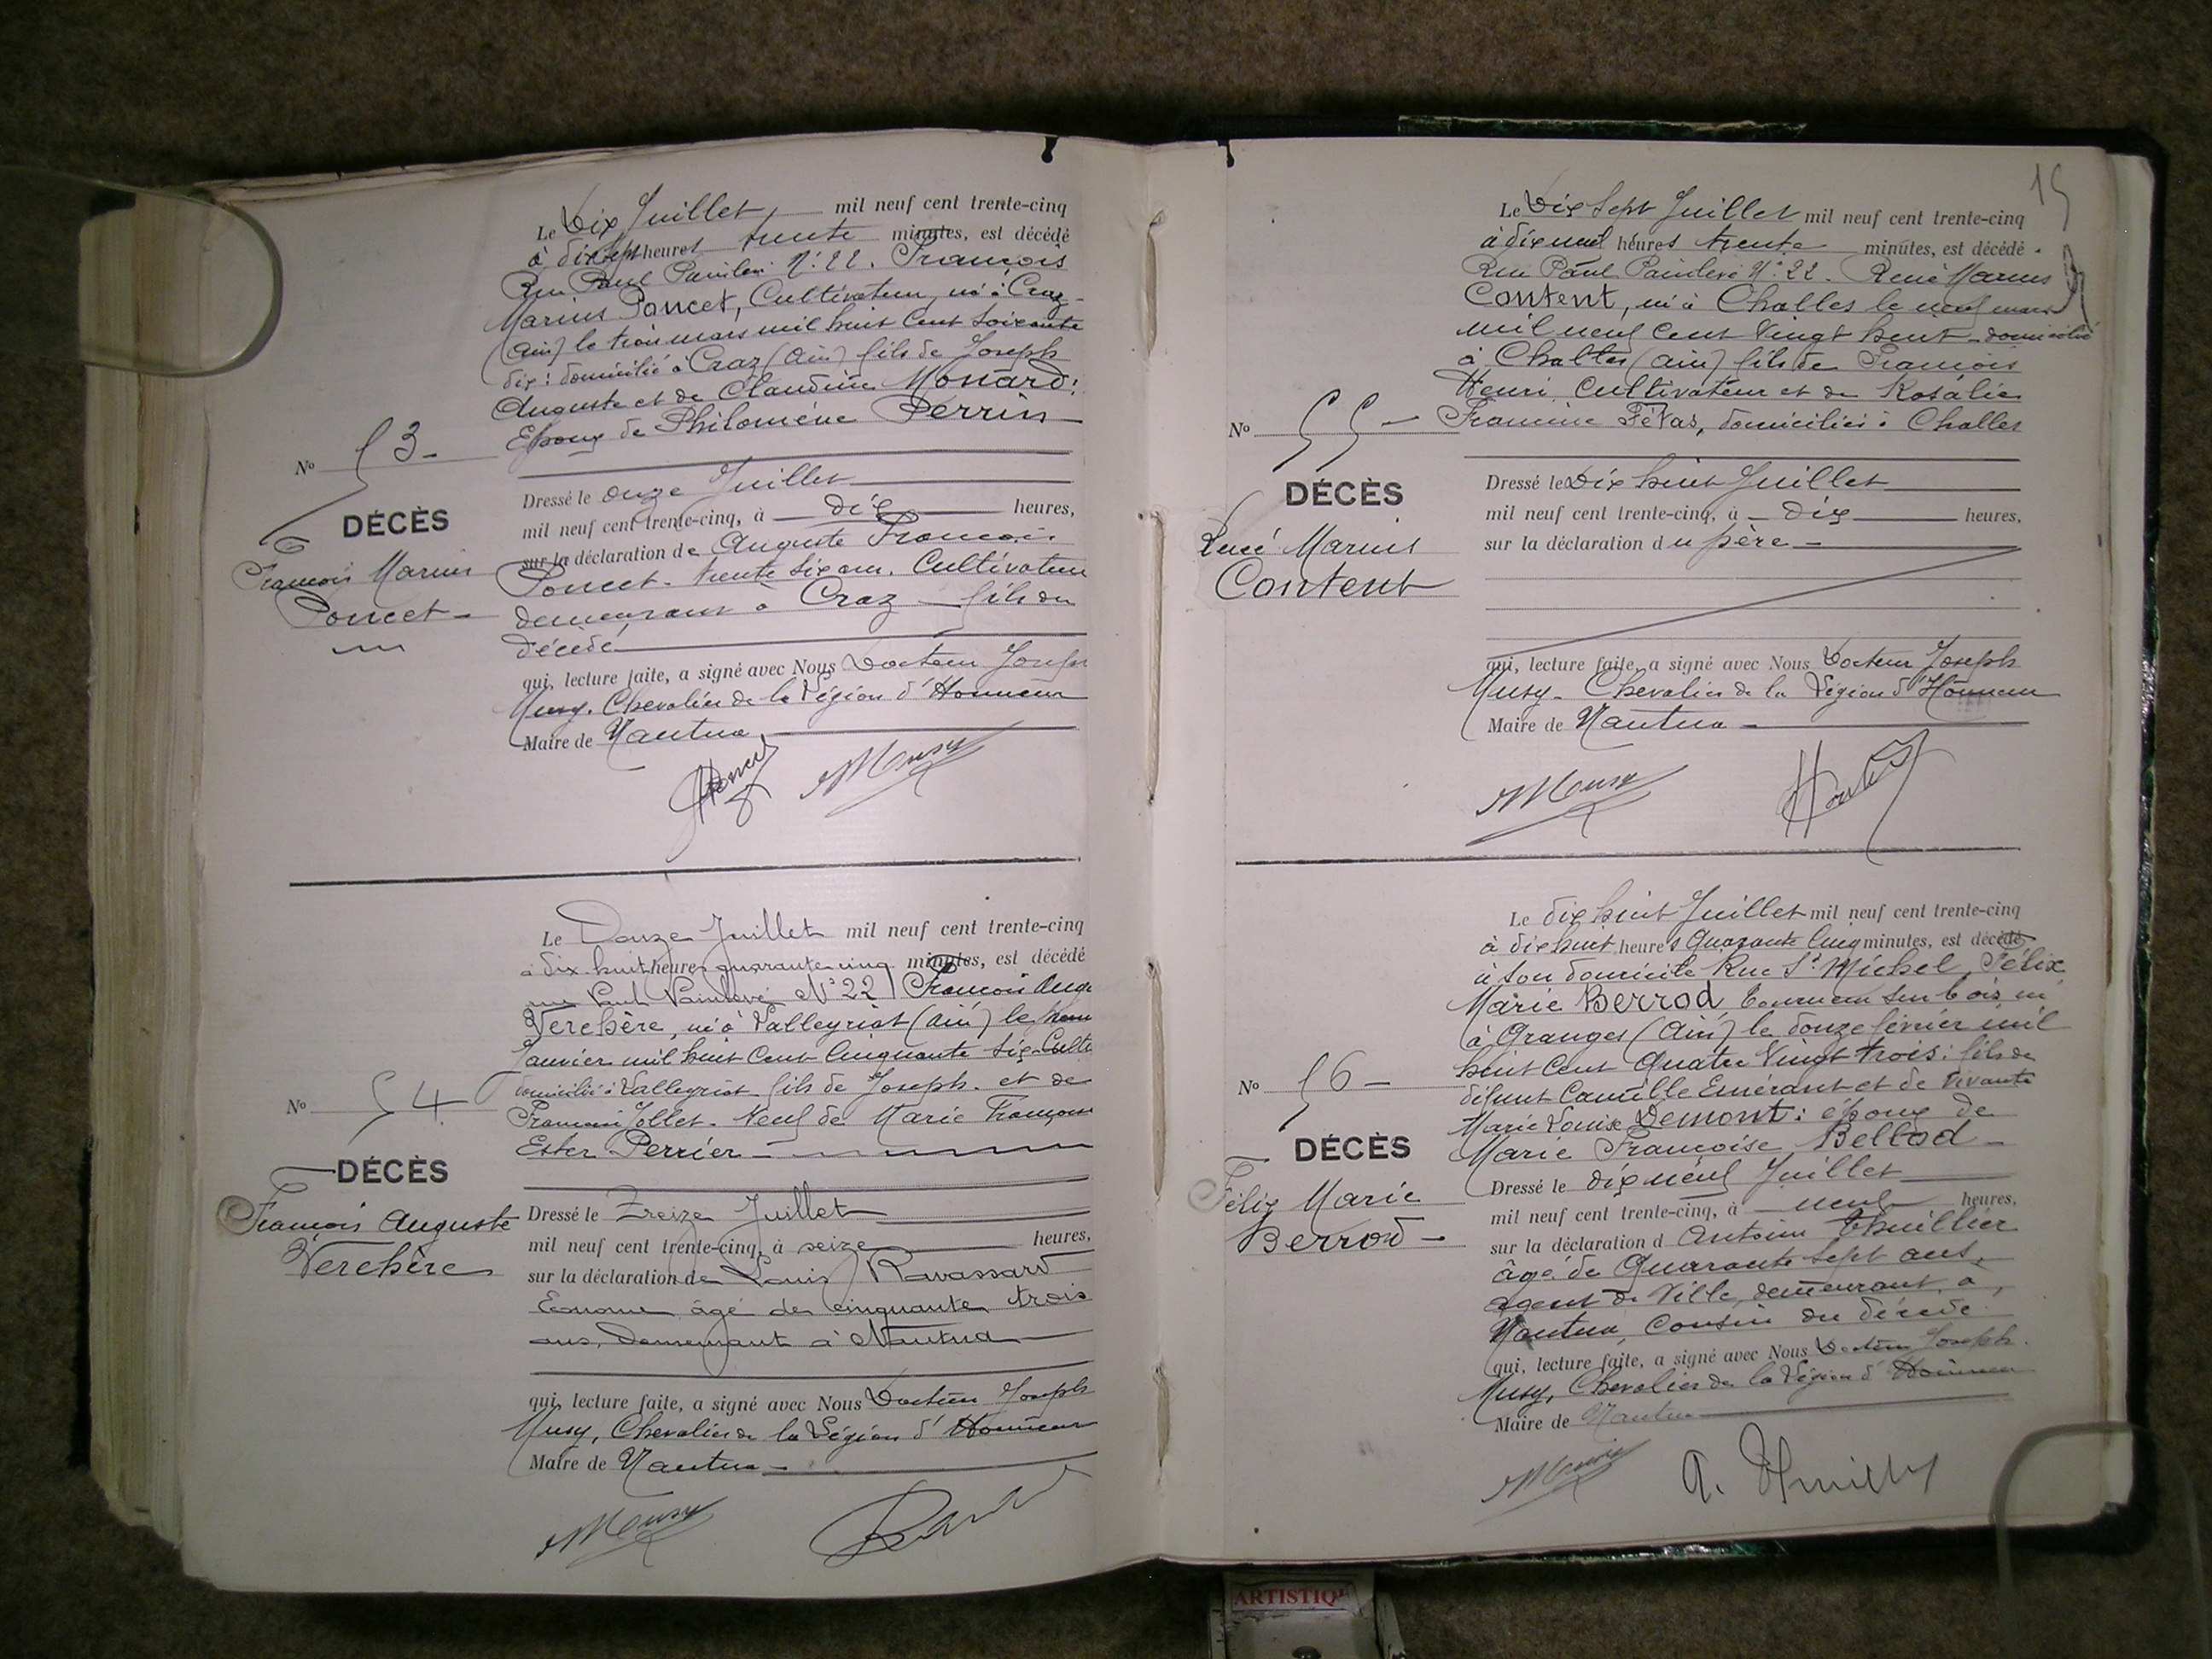 Le Dix Juillet mil neuf cent trente-cinq
à dix sept heures trente minutes, est décédé
Rue Paul Painlevé N° 22. François
Marius Poncet, Cultivateur, né à Craz
(Ain) le trois mars mil huit cent soixante
dix: domicilié à Craz (Ain) fils de Joseph
Auguste et de Claudine Monnard:
Epoux de Philomène Perrin
No 53
DÉCÈS
François Marius
Poncet
Dressé le onze Juillet
mil neuf cent trente-cinq, à dix heures,
sur la déclaration de Auguste François
Poncet. trente six ans. Cultivateur
demeurant à Craz fils du
décédé
qui, lecture faite, a signé avec Nous Docteur Joseph
Musy. Chevalier de la Légion d'Honneur
Maire de Nantua
Musy
Le Douze Juillet mil neuf cent trente-cinq
à dix huit heures quarante cinq minutes, est décédé
rue Paul Painlevé N° 22 François Augu
Verchère, né à Valleyriat (Ain) le
Janvier mil huit cent cinquante six. Culti
domicilié à Valleyriat fils de Joseph. et de
Jollet. Veuf de Marie Françoise
Ester Perrier
No 54
DÉCÈS
François Auguste
Verchère
Dressé le Treize Juillet
mil neuf cent trente-cinq, à seize heures,
sur la déclaration de Louis Ravassard
Econome âgé de cinquante trois
ans, demeurant à Nantua
qui, lecture faite, a signé avec Nous Docteur Joseph
Musy, Chevalier de la Légion d'Honneur
Maire de Nantua
Musy
15
Le Dix Sept Juillet mil neuf cent trente-cinq
à dix neuf heures trente minutes, est décédé
Rue Paul Painlevé N° 22. René Marius
Content, né à Challes le neuf mars
mil neuf cent vingt huit domicilié
à Challes (Ain) fils de François
Henri, Cultivateur et de Rosalie
Francine Fétas, domiciliés à Challes
No 55
DÉCÈS
René Marius
Content
Dressé le Dix huit Juillet
mil neuf cent trente-cinq, à dix heures,
sur la déclaration du père
qui, lecture faite, a signé avec Nous Docteur Joseph
Musy. Chevalier de la Légion d'Honneur
Maire de Nantua
Musy
Le dix huit Juillet mil neuf cent trente-cinq
à dix huit heures Quarante Cinq minutes, est décédé
à son domicile Rue St Michel, Félix
Marie Berrod tourneur sur bois, né
à Granges (Ain) le douze février mil
huit cent Quatre Vingt trois: fils de
défunt Camille Emérant et de vivante
Marie Louise Demont: époux de
Marie Françoise Bellod
No 56
DÉCÈS
Félix Marie
Berrod
Dressé le dix neuf Juillet
mil neuf cent trente-cinq, à neuf heures,
sur la déclaration d Antoine Thuillier
âgé de Quarante sept ans,
agent de Ville, demeurant à
Nantua, cousin du décédé
qui, lecture faite, a signé avec Nous Docteur Joseph
Musy, Chevalier de la Légion d'Honneur
Maire de Nantua
Musy
A. Thuillier
ARTISTIQUE